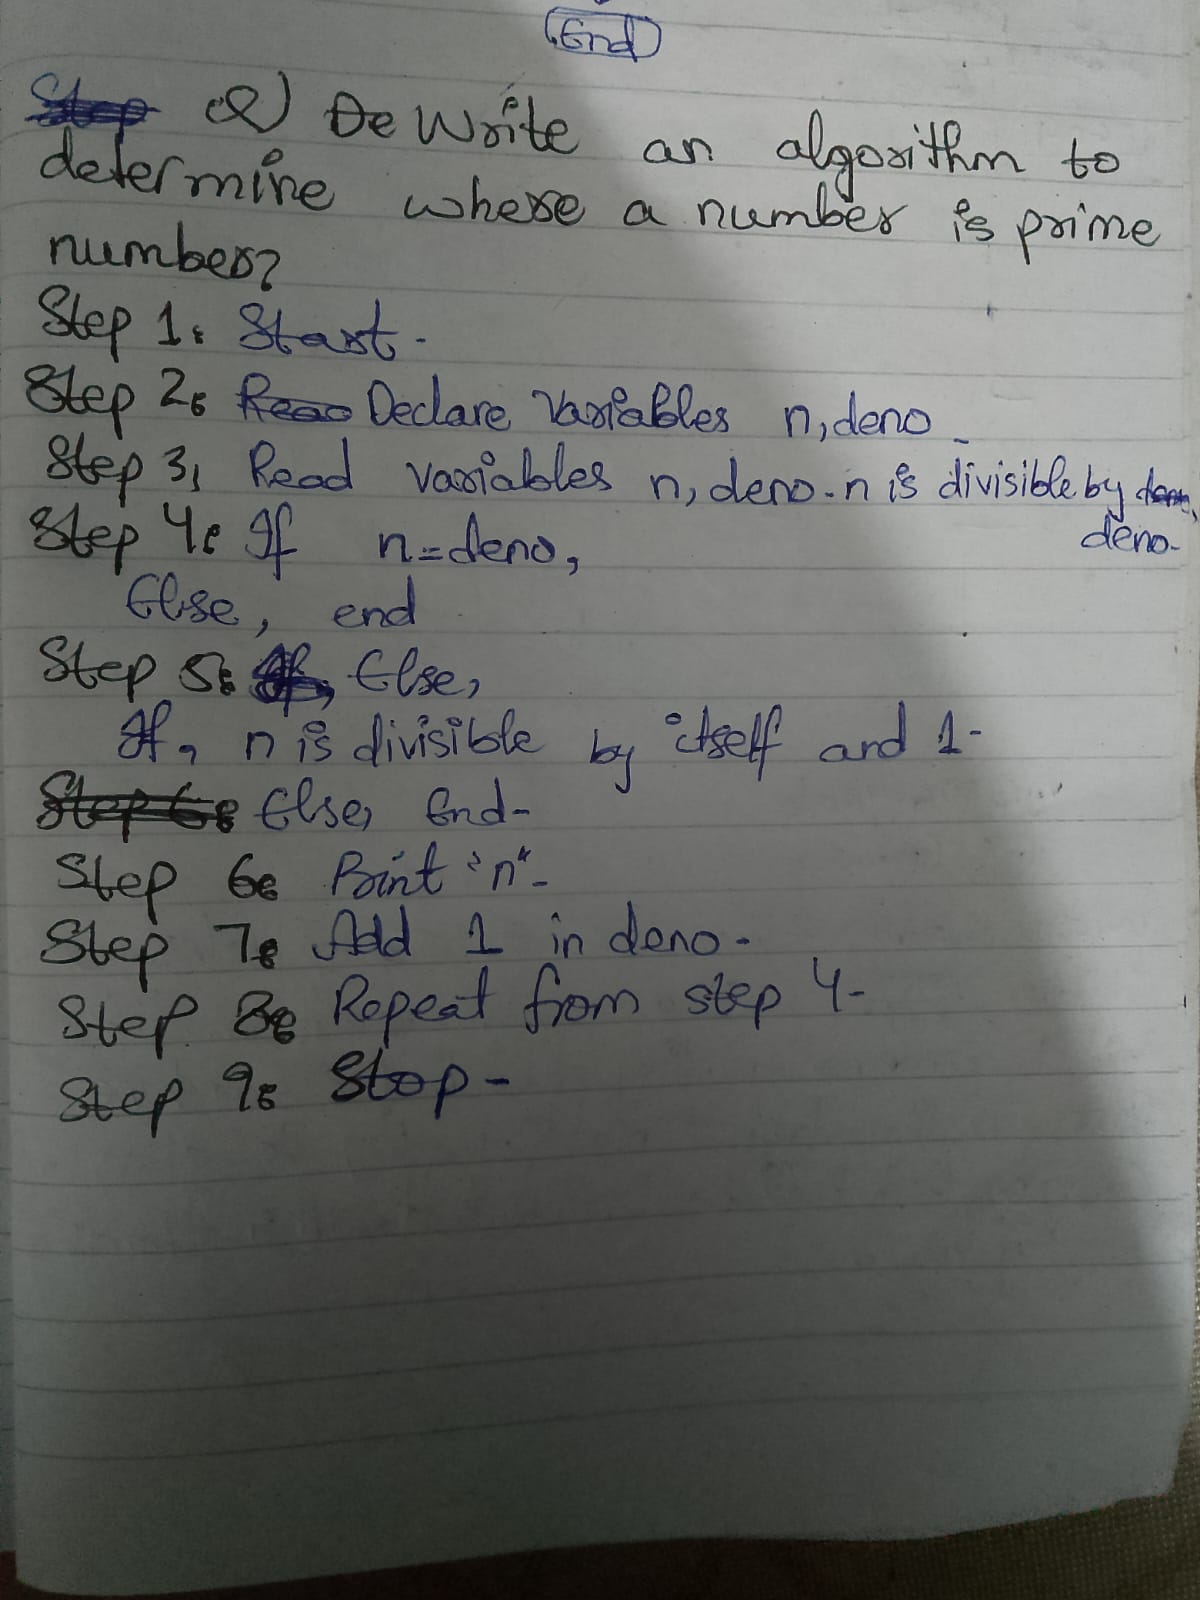 End
Q) De Write an algorithm to
determine where a number is prime
number?
Step 1: Start.
Step 2: Read Declare Variables n, deno.
Step 3, Read variables n, deno. n is divisible by
deno.
Step 4: If n=deno,
Else, end
Step 5: If, Else,
If, n is divisible by itself and 1-
Step 6: Else, End-
Step 6: Print "n"-
Step 7: Add 1 in deno-
Step 8: Repeat from step 4-
Step 9: Stop-